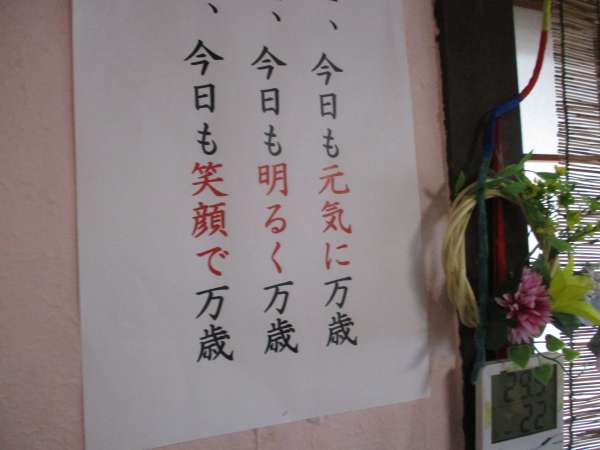 、今日も元気に万歳
、今日も明るく万歳
、今日も笑顔で万歳
22